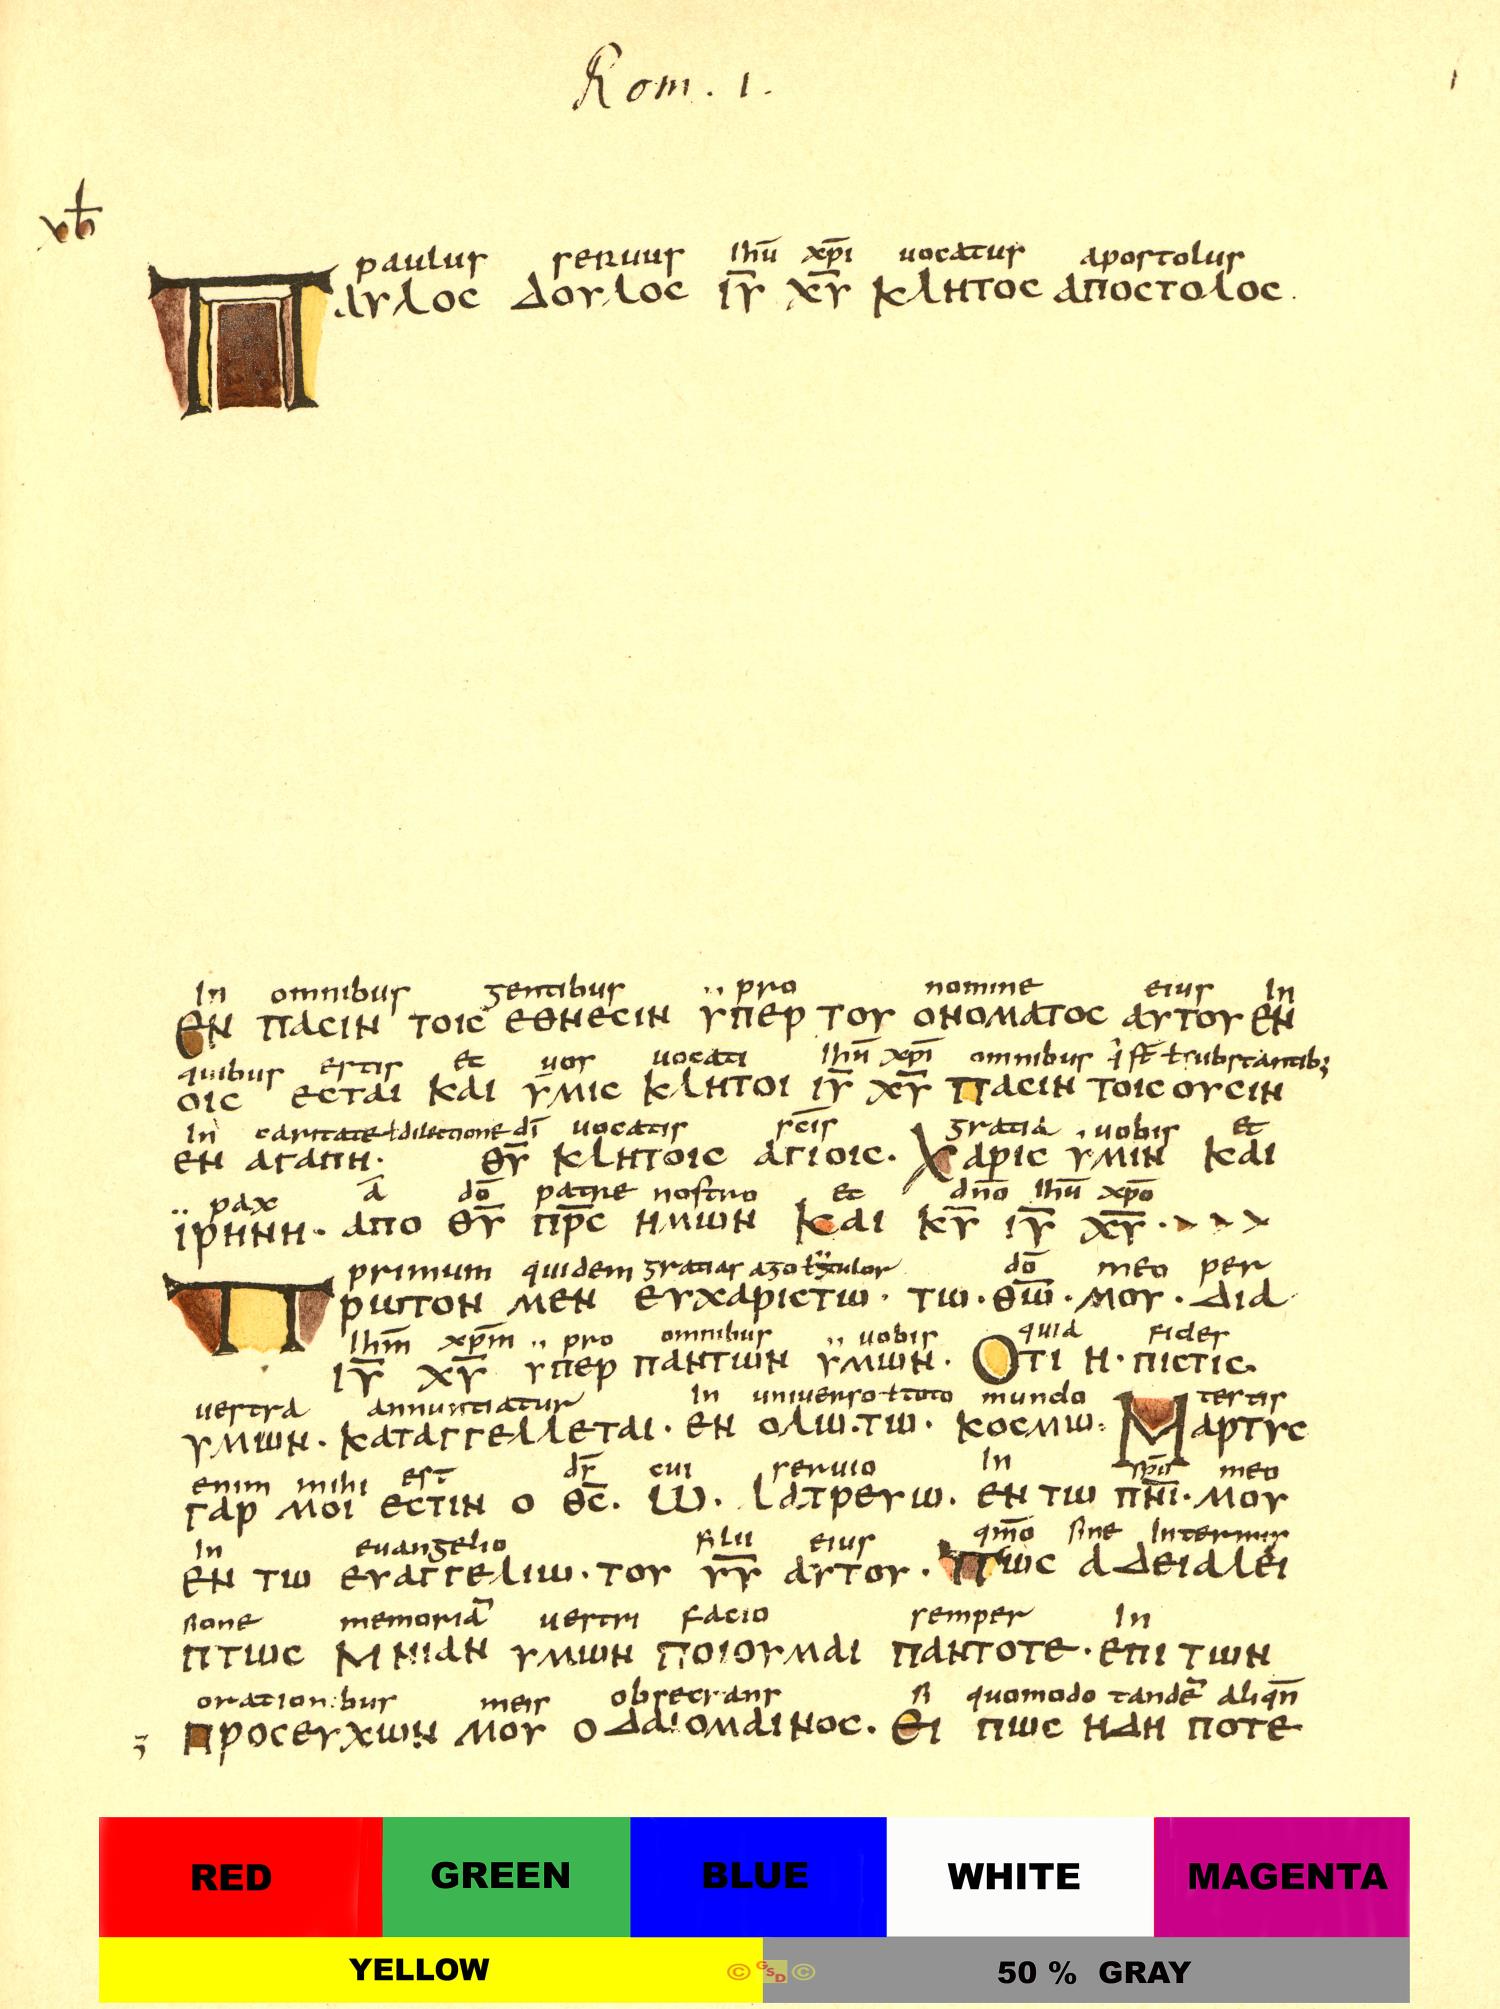 Rom. 1.
1
paulus seruus ihū xp̄i uocatus apostolus
ΠΑΥΛΟC ΔΟΥΛΟC ΙΥ̅ ΧΥ̅ ΚΛΗΤΟC ΑΠΟCΤΟΛΟC.
In omnibus gentibus ·· pro nomine eius In
ΕΝ ΠΑCΙΝ ΤΟΙC ΕΘΝΕCΙΝ ΥΠΕΡ ΤΟΥ ΟΝΟΜΑΤΟC ΑΥΤΟΥ ΕΝ
quibus estis et uos uocati ihū xp̄i omnibus substantib;
ΟΙC ΕCΤΑΙ ΚΑΙ ΥΜΙC ΚΛΗΤΟΙ ΙΥ̅ ΧΥ̅ ΠΑCΙΝ ΤΟΙC ΟΥCΙΝ
In caritate ł dilectione dī uocatis sc̄is gratia uobis et
ΕΝ ΑΓΑΠΗ· ΘΥ̅ ΚΛΗΤΟΙC ΑΓΙΟΙC· ΧΑΡΙC ΥΜΙΝ ΚΑΙ
·· pax ā dō patre nostro et dn̄o ihū xp̄o
ΙΡΗΝΗ· ΑΠΟ ΘΥ̅ ΠΡ̅C ΗΜΩΝ ΚΑΙ ΚΥ̅ ΙΥ̅ ΧΥ̅· > > >
primum quidem gratias ago dō meo per
ΠΡΩΤΟΝ ΜΕΝ ΕΥΧΑΡΙCΤΩ· ΤΩ· ΘΩ̅· ΜΟΥ· ΔΙΑ
ihm̄ xp̄m ·· pro omnibus ·· uobis quia fides
ΙΥ̅ ΧΥ̅ ΥΠΕΡ ΠΑΝΤΩΝ ΥΜΩΝ· ΟΤΙ Η· ΠΙCΤΙC
uestra annuntiatur In uniuerso ł toto mundo testis
ΥΜΩΝ· ΚΑΤΑΓΓΕΛΛΕΤΑΙ· ΕΝ ΟΛΩ·ΤΩ· ΚΟCΜΩ: ΜΑΡΤΥC
enim mihi est ds̄ cui seruio In sp̄u meo
ΓΑΡ ΜΟΙ ΕCΤΙΝ Ο ΘC̅· Ω· ΛΑΤΡΕΥΩ· ΕΝ ΤΩ ΠΝ̅Ι· ΜΟΥ
In euangelio filii eius qm̄o sine Intermis
ΕΝ ΤΩ ΕΥΑΓΓΕΛΙΩ· ΤΟΥ ΥΥ̅ ΑΥΤΟΥ· ΠΩC ΑΔΕΙΑΛΕΙ
sione memoriā uestri facio semper In
ΠΤΩC ΜΝΙΑΝ ΥΜΩΝ ΠΟΙΟΥΜΑΙ ΠΑΝΤΟΤΕ· ΕΠΙ ΤΩΝ
orationibus meis obsecrans si quomodo tandē aliqn̄
ΠΡΟCΕΥΧΩΝ ΜΟΥ Ο ΔΑΙΟΜΑΙΝΟC· ΕΙ ΠΩC ΗΔΗ ΠΟΤΕ
RED GREEN BLUE WHITE MAGENTA
YELLOW © GSD © 50 % GRAY